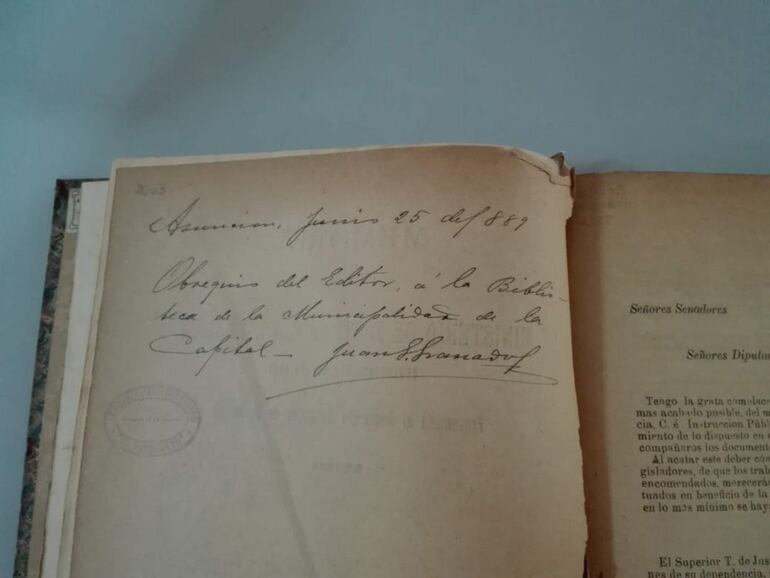 Asuncion, Junio 25 de 1889
Obsequio del Editor, á la Biblio-
teca de la Municipalidad de la
Capital — Juan S. Granados
Señores Senadores
Señores Diputa
Tengo la grata complace
mas acabado posible, del m
cia, C. é Instruccion Públ
miento de lo dispuesto en
compañaros los document
Al acatar este deber con
gisladores, de que los trab
encomendados, merecerán
tuados en beneficio de la
en lo mas mínimo se hay
El Superior T. de Jus
nes de su dependencia,